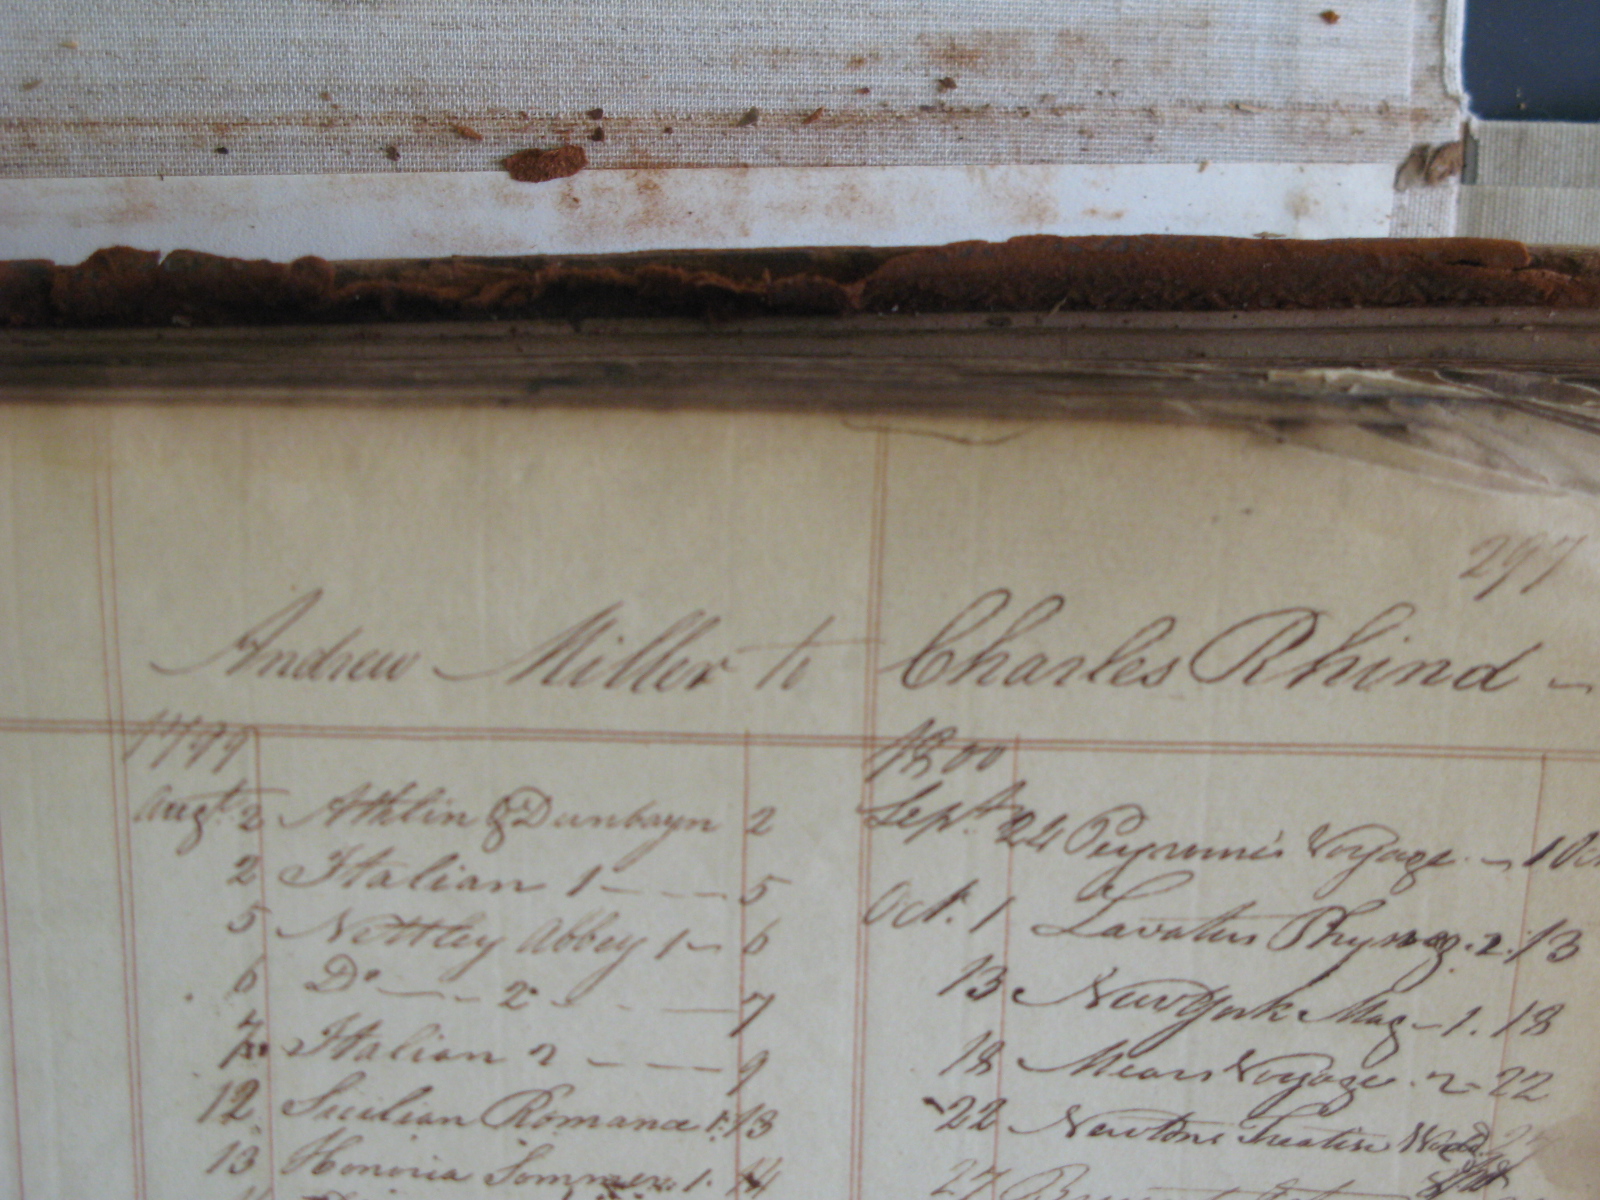 297
Andrew Miller to Charles Rhind —
1799
Augt. 2 Athlin & Dunbayn 2
2 Italian 1 - - - 5
5 Nettley Abbey 1 - 6
6 Do — - 2 - - - 7
7 Italian 2 - - - 9
12 Sicilian Romance 1. 13
13 Honoria Sommer 1. 14
1800
Sept. 24 Voyage. - 1 Oct
Oct. 1 Lavaters Physiog. 2. 13
13 New York Mag - 1. 18
18 Mears Voyage. 2 - 22
22 Newtons Treatise
27